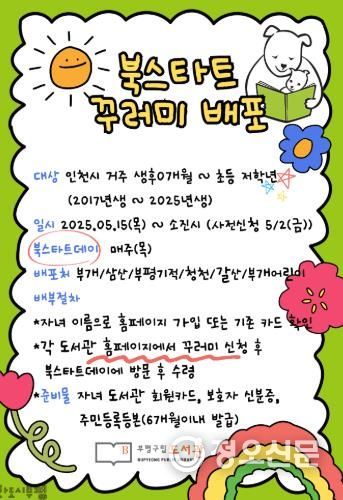 북스타트
꾸러미 배포
대상 인천시 거주 생후0개월 ~ 초등 저학년
(2017년생 ~ 2025년생)
일시 2025.05.15(목) ~ 소진시 (사전신청 5/2(금))
북스타트데이 매주(목)
배포처 부개/삼산/부평기적/청천/갈산/부개어린이
배부절차
*자녀 이름으로 홈페이지 가입 또는 기존 카드 확인
*각 도서관 홈페이지에서 꾸러미 신청 후
북스타트데이에 방문 후 수령
*준비물 자녀 도서관 회원카드, 보호자 신분증,
주민등록등본(6개월이내 발급)
B 부평구립도서관
BUPYEONG PUBLIC
정오신문